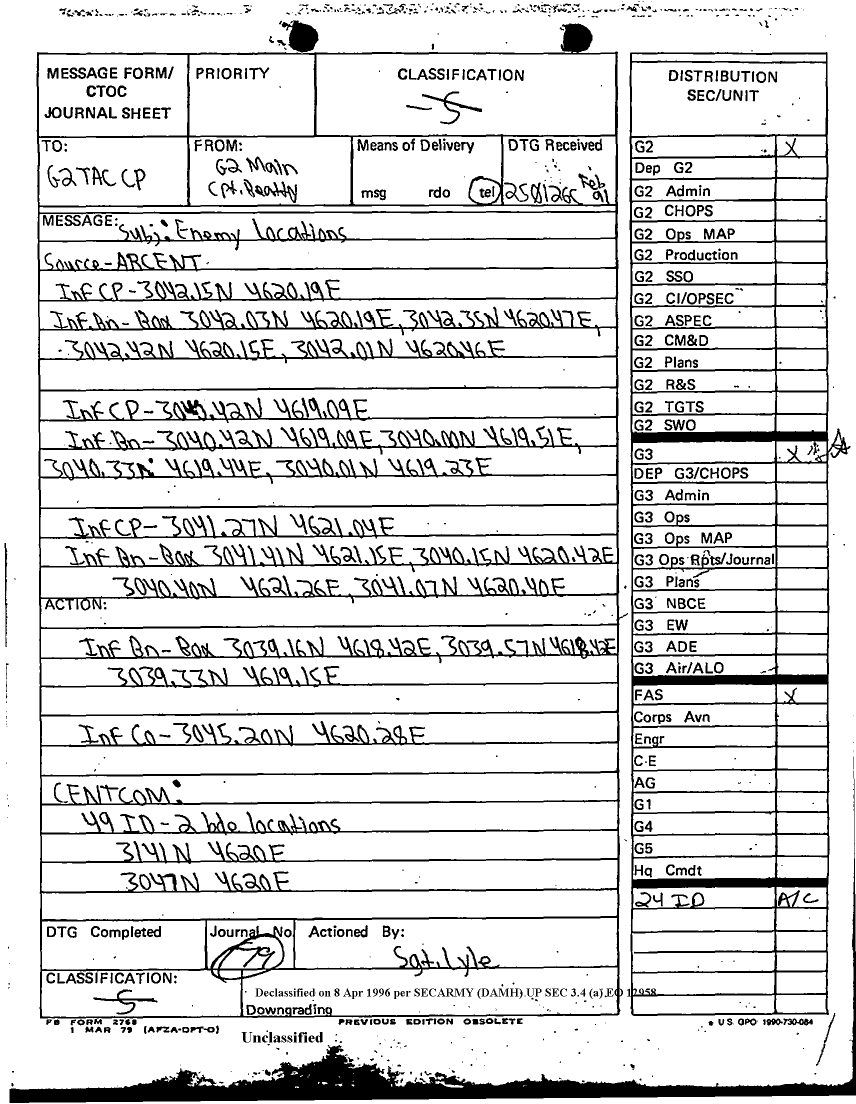 MESSAGE FORM/
CTOC
JOURNAL SHEET
PRIORITY
CLASSIFICATION
S
TO:
G2 TAC CP
FROM:
G2 Main
Cpt. Beatty
Means of Delivery
msg rdo tel
DTG Received
250126C Feb 91
MESSAGE: Subj: Enemy locations
Source-ARCENT
Inf CP-3042.15N 4620.19E
Inf. Bn-Box 3042.03N 4620.19E, 3042.35N 4620.47E,
3042.42N 4620.15E, 3042.01N 4620.46E
Inf CP-3040.42N 4619.09E
Inf. Bn-3040.42N 4619.09E, 3040.00N 4619.51E,
3040.33N 4619.44E, 3040.01N 4619.23E
Inf CP-3041.27N 4621.04E
Inf Bn-Box 3041.41N 4621.15E, 3040.15N 4620.42E
3040.40N 4621.26E, 3041.07N 4620.40E
ACTION:
Inf Bn-Box 3039.16N 4618.42E, 3039.57N 4618.42E
3039.33N 4619.15E
Inf Co-3045.20N 4620.28E
CENTCOM:
49 ID-2 bde locations
3141N 4620E
3047N 4620E
DTG Completed
Journal No
79
Actioned By:
Sgt. Lyle
CLASSIFICATION:
S
Declassified on 8 Apr 1996 per SECARMY (DAMH) UP SEC 3.4 (a) EO 12958
Downgrading
FB FORM 2768
1 MAR 79 (AFZA-DPT-O)
PREVIOUS EDITION OBSOLETE
Unclassified
DISTRIBUTION
SEC/UNIT
G2 X
Dep G2
G2 Admin
G2 CHOPS
G2 Ops MAP
G2 Production
G2 SSO
G2 CI/OPSEC
G2 ASPEC
G2 CM&D
G2 Plans
G2 R&S
G2 TGTS
G2 SWO
G3 X
DEP G3/CHOPS
G3 Admin
G3 Ops
G3 Ops MAP
G3 Ops Rpts/Journal
G3 Plans
G3 NBCE
G3 EW
G3 ADE
G3 Air/ALO
FAS X
Corps Avn
Engr
C-E
AG
G1
G4
G5
Hq Cmdt
24 ID A/C
U.S. GPO 1990-730-084